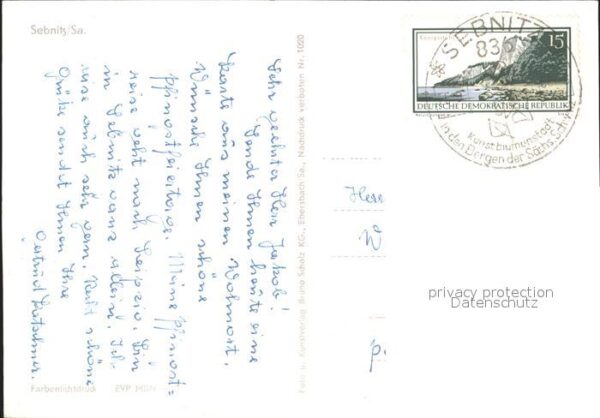 Sebnitz/Sa.
Sehr geehrter Herr Jakob!
Sende Ihnen heute eine
Karte aus meinen Wohnort.
Wünsche Ihnen schöne
Pfingstfeiertage. Meine Pfingst=
reise geht nach Leipzig. Bin
in Sebnitz ganz allein.
mich sehr gern. Recht schöne
Grüße sendet Ihnen Ihre
Gertrud
Farbenlichtdruck EVP MDN
Foto u. Kunstverlag Bruno Scholz KG., Ebersbach Sa., Nachdruck verboten Nr. 1020
SEBNITZ
836
Kunstblumenstadt
in den Bergen der Sächs. Schweiz
15
DEUTSCHE DEMOKRATISCHE REPUBLIK
Herr
W
privacy protection
Datenschutz